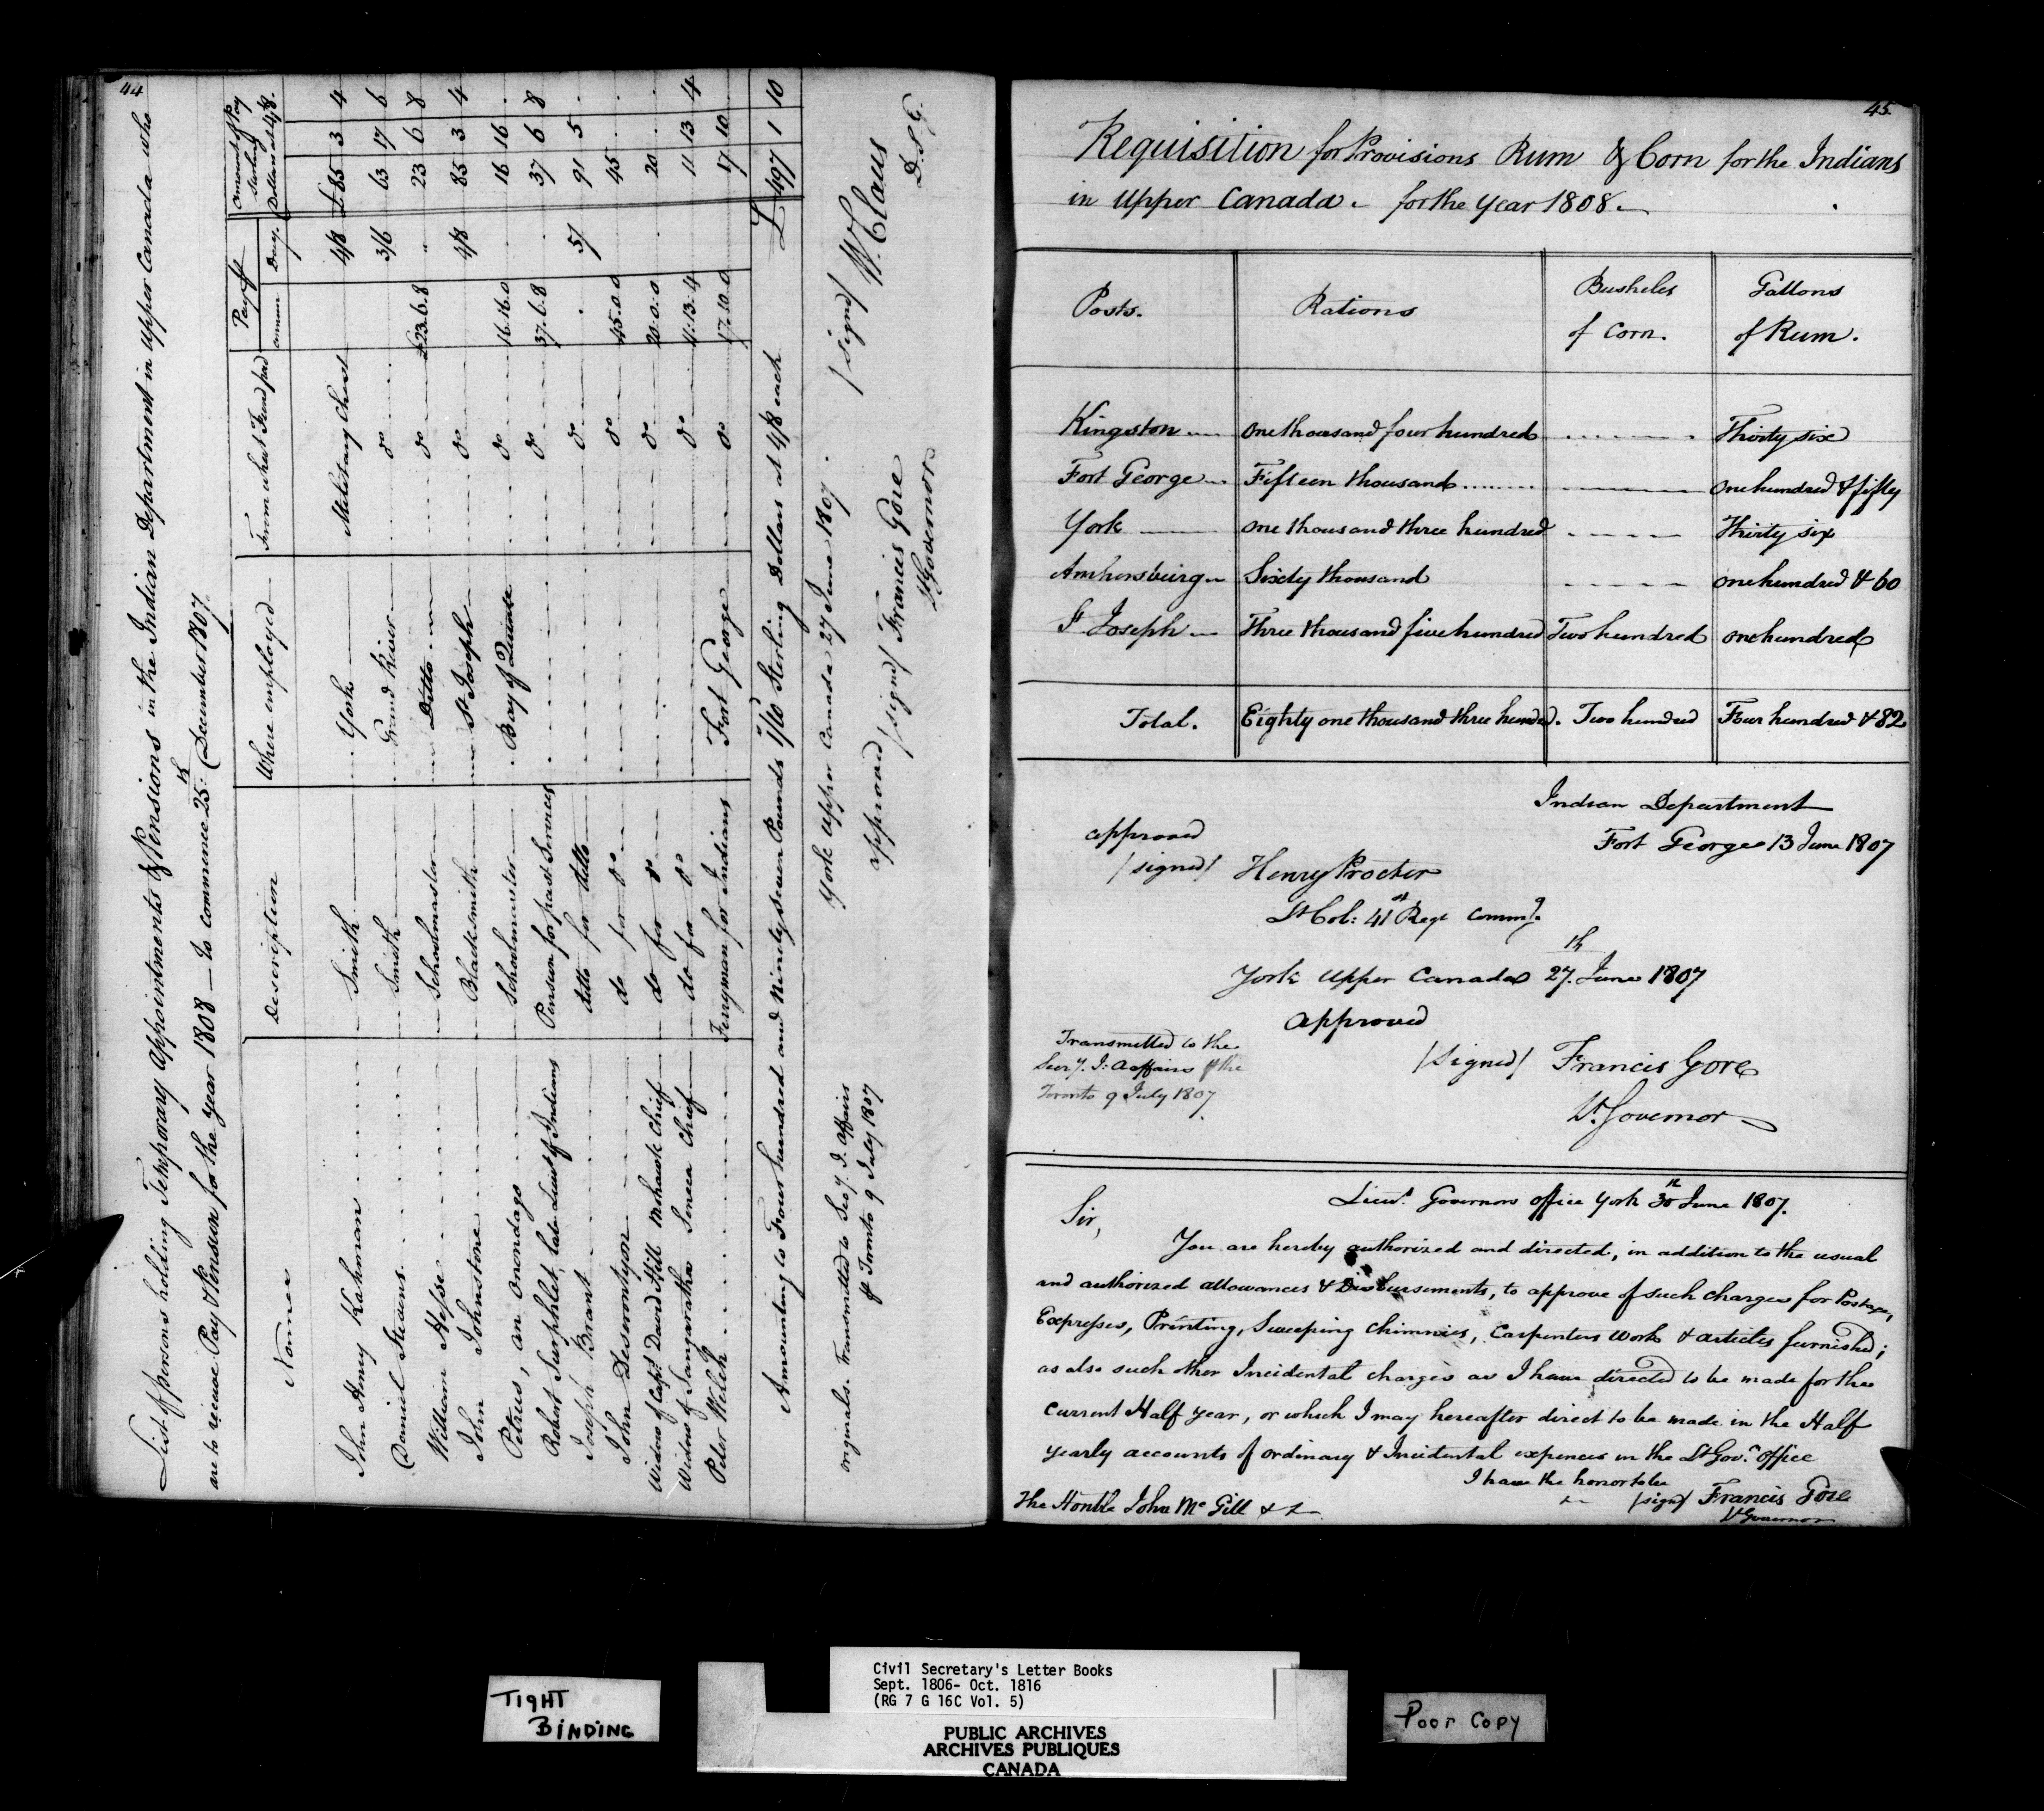 44
List of persons holding Temporary Appointments & Pensions in the Indian Department in Upper Canada who
are to receive Pay & Pension for the year 1808 — to commence 25th December 1807
Names Description Where employed From what Fund paid Pay annum Day Amount of Pay Sterling Dollars at 4/8.
John Henry Kahman Smith York Military Chest 4/8 £85 3 4
Daniel Stevens Smith Grand River do 3/6 63 17 6
William Hesse Schoolmaster Ditto do £23.6.8 23 6 8
John Johnstone Blacksmith St Joseph do 4/8 85 3 4
Petrus, an Onondago Schoolmaster Bay of Quinte do 16.16.0 16 16
Robert Surphlet, late Lieut of Indians Pension for past Services do 37.6.8 37 6 8
Joseph Brant ditto for ditto do 5/ 91 5
John Deserontyon do for do do 45.0.0 45
Widow of Capt David Hill Mohawk Chief do for do do 20.0.0 20
Widow of Sangaratha Seneca Chief do for do do 11.13.4 11 13 4
Peter Welch Ferryman for Indians Fort George do 17.10.0 17 10
Amounting to Four hundred and Ninety seven Pounds 1/10 Sterling Dollars at 4/8 each £ 497 1 10
York Upper Canada 27 June 1807.
/signed/ W. Claus
D.S.G.
approved
/signed/ Francis Gore
Lt Governor
originals. Transmitted to Secy. I. Affairs
Toronto 9 July 1807
45
Requisition for Provisions Rum & Corn for the Indians
in Upper Canada. for the Year 1808.
Posts. Rations Bushels of Corn. Gallons of Rum.
Kingston one thousand four hundred Thirty six
Fort George Fifteen thousand one hundred & fifty
York one thousand three hundred Thirty six
Amhersburg Sixty thousand one hundred & 60
St Joseph Three thousand five hundred Two hundred one hundred
Total. Eighty one thousand three hundred. Two hundred Four hundred & 82
Indian Department
Fort George 13 June 1807
approved
/signed/ Henry Procter
Lt Col: 41st Regt Commg.
York Upper Canada 27th June 1807
approved
Transmitted to the
Secry. I: Affairs the
Toronto 9 July 1807
/Signed/ Francis Gore
Lt Governor
Lieut Governors Office York 30th June 1807.
Sir,
You are hereby authorized and directed, in addition to the usual
and authorized allowances & Disbursements, to approve of such charges for Postage,
Expresses, Printing, Sweeping Chimnies, Carpenters Work & articles furnished;
as also such other Incidental charges as I have directed to be made for the
Current Half Year, or which I may hereafter direct to be made in the Half
yearly accounts of ordinary & Incidental expences in the Lt Govr Office
I have the honor to be
/sign/ Francis Gore
Lt Governor
The Honble John McGill &c
TIGHT
BINDING
Civil Secretary's Letter Books
Sept. 1806- Oct. 1816
(RG 7 G 16C Vol. 5)
PUBLIC ARCHIVES
ARCHIVES PUBLIQUES
CANADA
Poor Copy